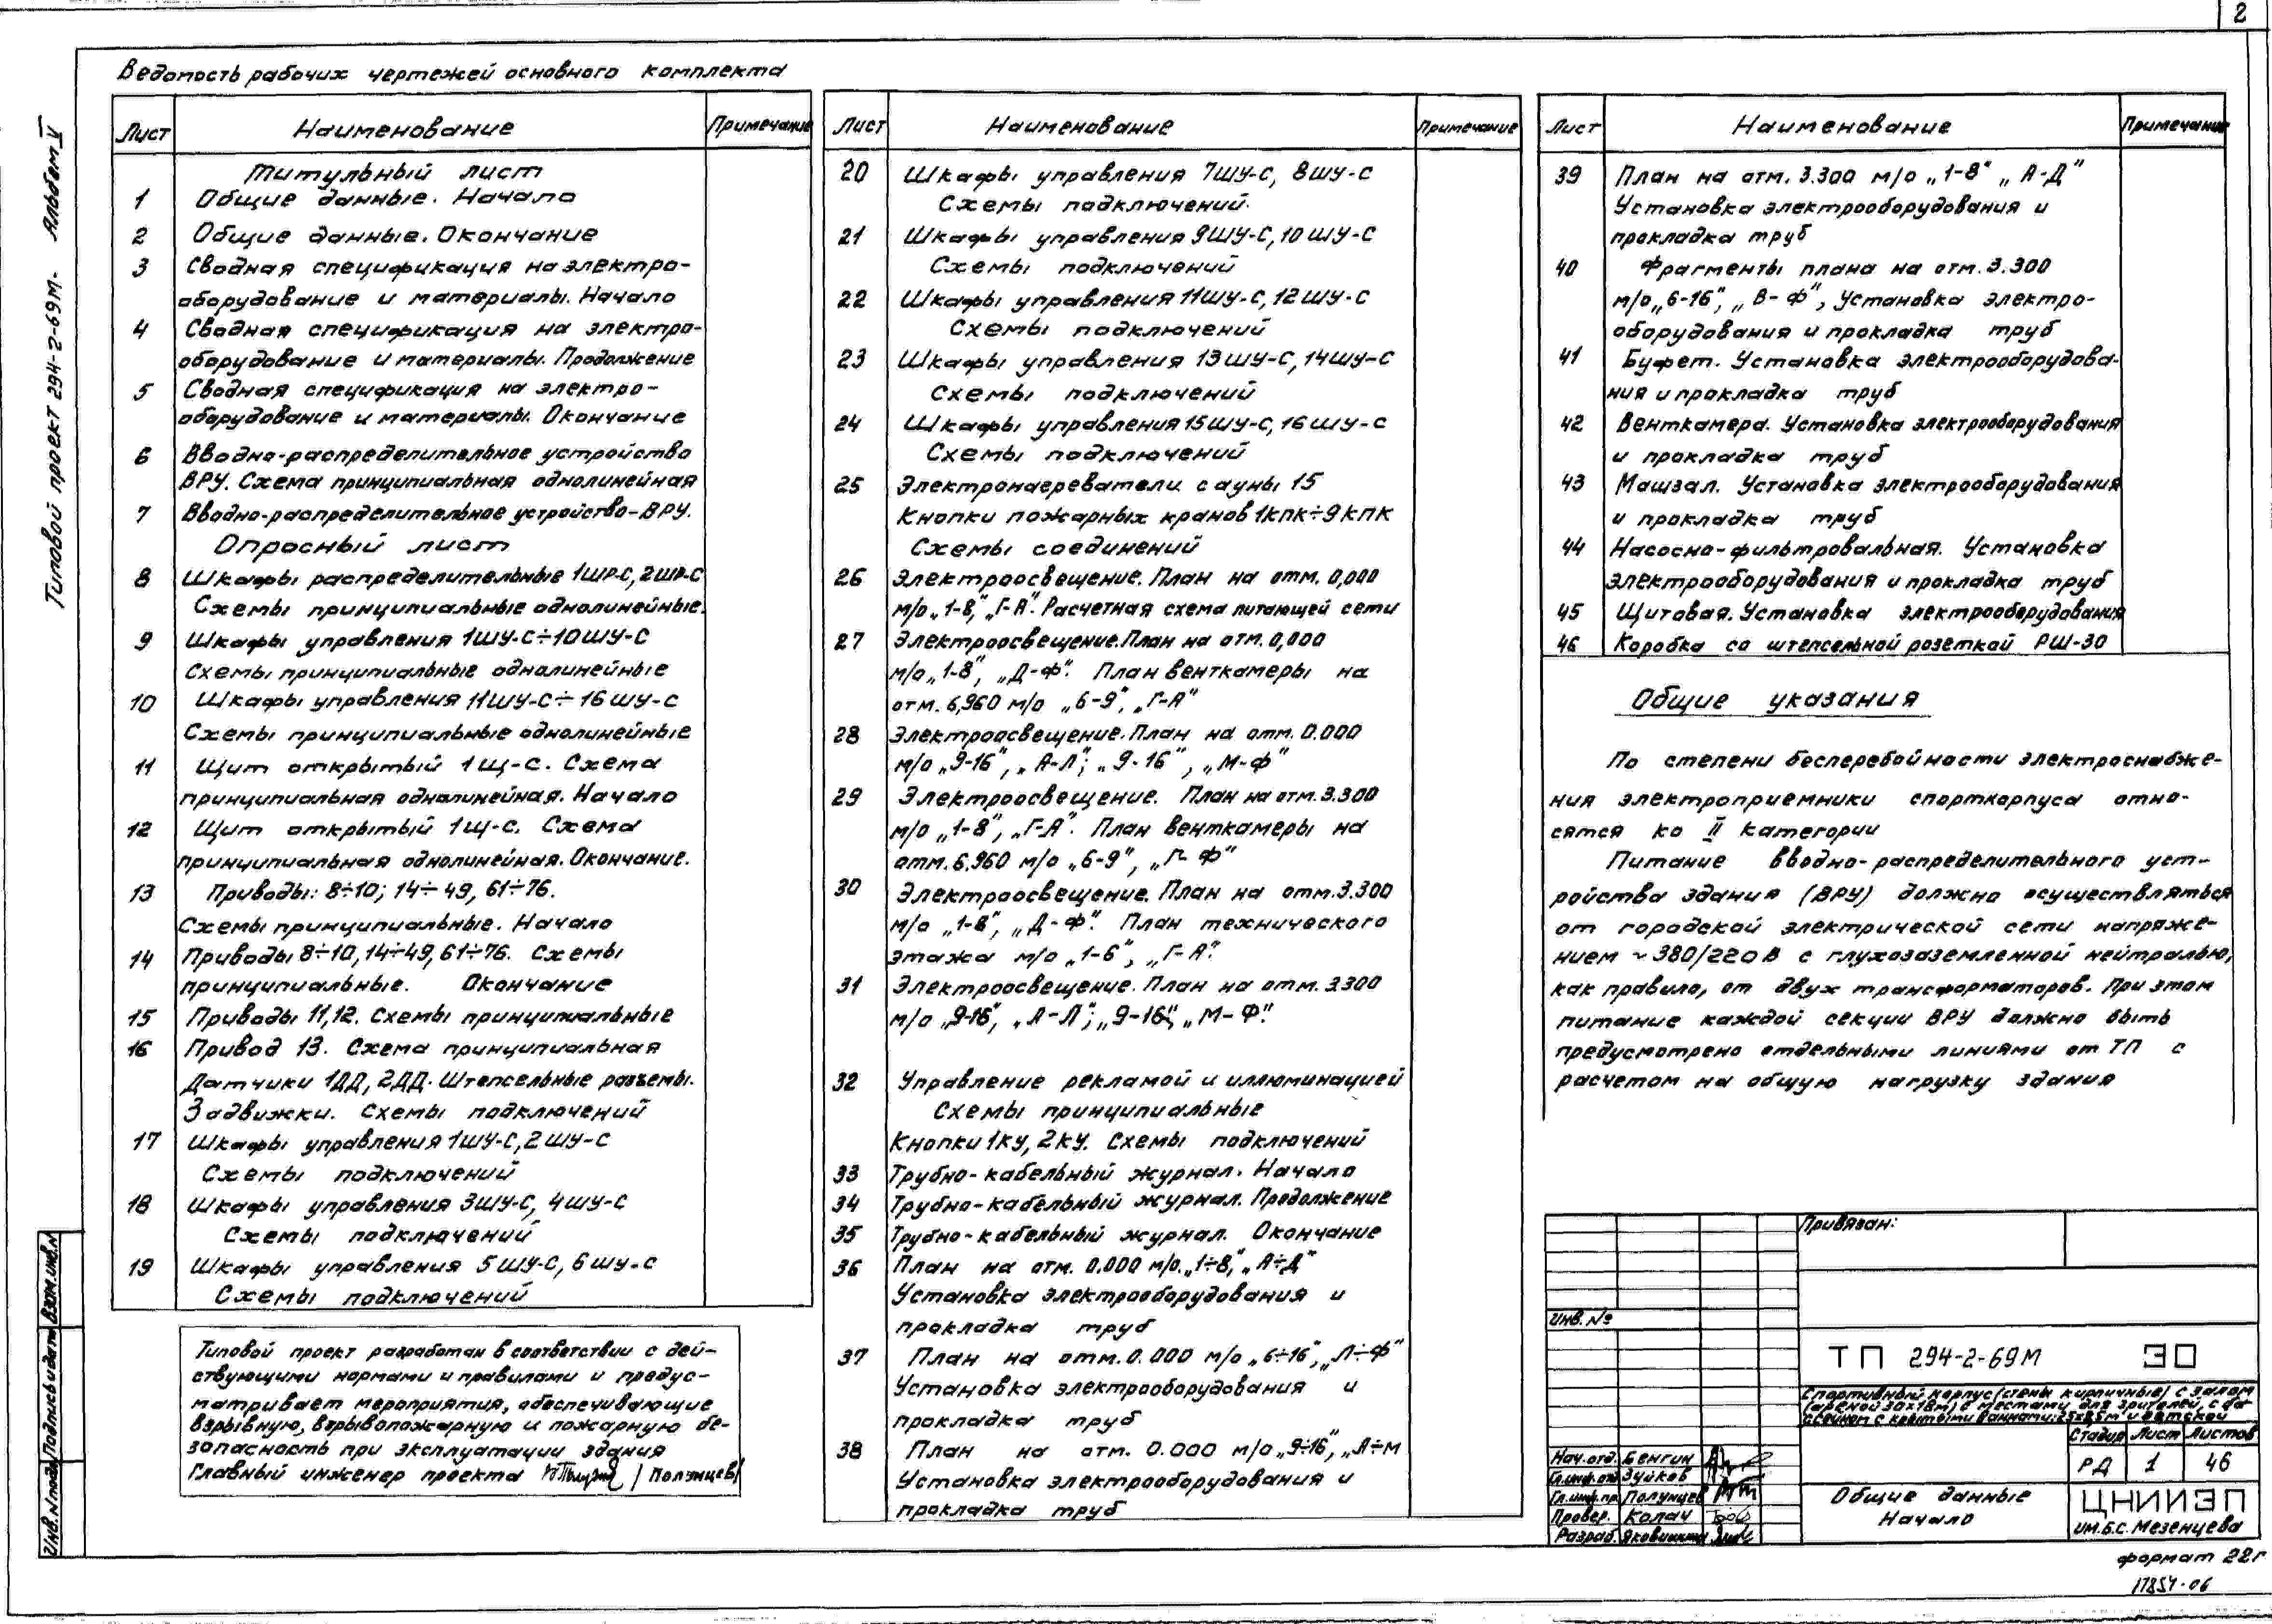 2
Типовой проект 294-2-69М. Альбом V
Ведомость рабочих чертежей основного комплекта
Лист Наименование Примечание
Титульный лист
1 Общие данные. Начало
2 Общие данные. Окончание
3 Сводная спецификация на электро-
оборудование и материалы. Начало
4 Сводная спецификация на электро-
оборудование и материалы. Продолжение
5 Сводная спецификация на электро-
оборудование и материалы. Окончание
6 Вводно-распределительное устройство
ВРУ. Схема принципиальная однолинейная
7 Вводно-распределительное устройство-ВРУ.
Опросный лист
8 Шкафы распределительные 1ШР-С, 2ШР-С
Схемы принципиальные однолинейные.
9 Шкафы управления 1ШУ-С÷10ШУ-С
Схемы принципиальные однолинейные
10 Шкафы управления 11ШУ-С÷16ШУ-С
Схемы принципиальные однолинейные
11 Щит открытый 1Щ-С. Схема
принципиальная однолинейная. Начало
12 Щит открытый 1Щ-С. Схема
принципиальная однолинейная. Окончание.
13 Приводы: 8÷10; 14÷49, 61÷76.
Схемы принципиальные. Начало
14 Приводы 8÷10, 14÷49, 61÷76. Схемы
принципиальные. Окончание
15 Приводы 11,12. Схемы принципиальные
16 Привод 13. Схема принципиальная
Датчики 1ДД, 2ДД. Штепсельные разъемы.
Задвижки. Схемы подключений
17 Шкафы управления 1ШУ-С, 2ШУ-С
Схемы подключений
18 Шкафы управления 3ШУ-С, 4ШУ-С
Схемы подключений
19 Шкафы управления 5ШУ-С, 6ШУ-С
Схемы подключений
Типовой проект разработан в соответствии с дей-
ствующими нормами и правилами и предус-
матривает мероприятия, обеспечивающие
взрывную, взрывопожарную и пожарную бе-
зопасность при эксплуатации здания
Главный инженер проекта /Полунцев/
Лист Наименование Примечание
20 Шкафы управления 7ШУ-С, 8ШУ-С
Схемы подключений.
21 Шкафы управления 9ШУ-С, 10ШУ-С
Схемы подключений
22 Шкафы управления 11ШУ-С, 12ШУ-С
Схемы подключений
23 Шкафы управления 13ШУ-С, 14ШУ-С
Схемы подключений
24 Шкафы управления 15ШУ-С, 16ШУ-С
Схемы подключений
25 Электронагреватели сауны 15
Кнопки пожарных кранов 1КПК÷9КПК
Схемы соединений
26 Электроосвещение. План на отм. 0,000
м/о „1-8", „Г-А". Расчетная схема питающей сети
27 Электроосвещение. План на отм. 0,000
м/о „1-8", „Д-Ф". План венткамеры на
отм. 6,960 м/о „6-9", „Г-А"
28 Электроосвещение. План на отм. 0.000
м/о „9-16", „А-Л"; „9-16", „М-Ф"
29 Электроосвещение. План на отм. 3.300
м/о „1-8", „Г-А". План венткамеры на
отм. 6.960 м/о „6-9", „Г-Ф"
30 Электроосвещение. План на отм. 3.300
м/о „1-8", „Д-Ф". План технического
этажа м/о „1-6", „Г-А".
31 Электроосвещение. План на отм. 3.300
м/о „9-16", „А-Л"; „9-16", „М-Ф".
32 Управление рекламой и иллюминацией
Схемы принципиальные
Кнопки 1КУ, 2КУ. Схемы подключений
33 Трубно-кабельный журнал. Начало
34 Трубно-кабельный журнал. Продолжение
35 Трубно-кабельный журнал. Окончание
36 План на отм. 0.000 м/о „1÷8", „А÷Д"
Установка электрооборудования и
прокладка труб
37 План на отм. 0.000 м/о „6÷16", „Л÷Ф"
Установка электрооборудования и
прокладка труб
38 План на отм. 0.000 м/о „9÷16", „Л÷М
Установка электрооборудования и
прокладка труб
Лист Наименование Примечание
39 План на отм. 3.300 м/о „1-8" „А-Д"
Установка электрооборудования и
прокладка труб
40 Фрагменты плана на отм. 3.300
м/о „6-16", „В-Ф", Установка электро-
оборудования и прокладка труб
41 Буфет. Установка электрооборудова-
ния и прокладка труб
42 Венткамера. Установка электрооборудования
и прокладка труб
43 Машзал. Установка электрооборудования
и прокладка труб
44 Насосно-фильтровальная. Установка
электрооборудования и прокладка труб
45 Щитовая. Установка электрооборудования
46 Коробка со штепсельной розеткой РШ-30
Общие указания
По степени бесперебойности электроснабже-
ния электроприемники спорткорпуса отно-
сятся ко II категории
Питание вводно-распределительного уст-
ройства здания (ВРУ) должно осуществляться
от городской электрической сети напряже-
нием ~380/220В с глухозаземленной нейтралью,
как правило, от двух трансформаторов. При этом
питание каждой секции ВРУ должно быть
предусмотрено отдельными линиями от ТП с
расчетом на общую нагрузку здания
Привязан:
Инв. №
ТП 294-2-69М ЭО
Спортивный корпус (стены кирпичные) с залом
(ареной 30х18м) с местами для зрителей, с ба
ссейном с крытыми ваннами: 25х8,5м и детской
Стадия Лист Листов
РД 1 46
Нач. отд. Бенгин
Гл. инж. отд Зуйков
Гл. инж. пр. Полунцев
Провер. Колач
Разраб.
Общие данные
Начало
ЦНИИЭП
им. Б.С. Мезенцева
Инв. N подл. Подпись и дата Взам. инв. N
формат 22г
17854-06